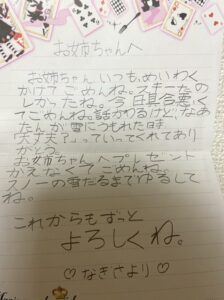 お姉ちゃんへ
お姉ちゃんいつも、めいわく
かけてごめんね。スキーたの
しかったね。今日
てごめんね。話かわるけど、なあ
たんが雪にうもれた時
「大丈夫?」っていってくれてあり
がとう。
お姉ちゃんへプレゼント
かえなくてごめんね。
スノーの雪だるまでゆるして
ね。
これからもずっと
よろしくね。
♡なぎさより♡